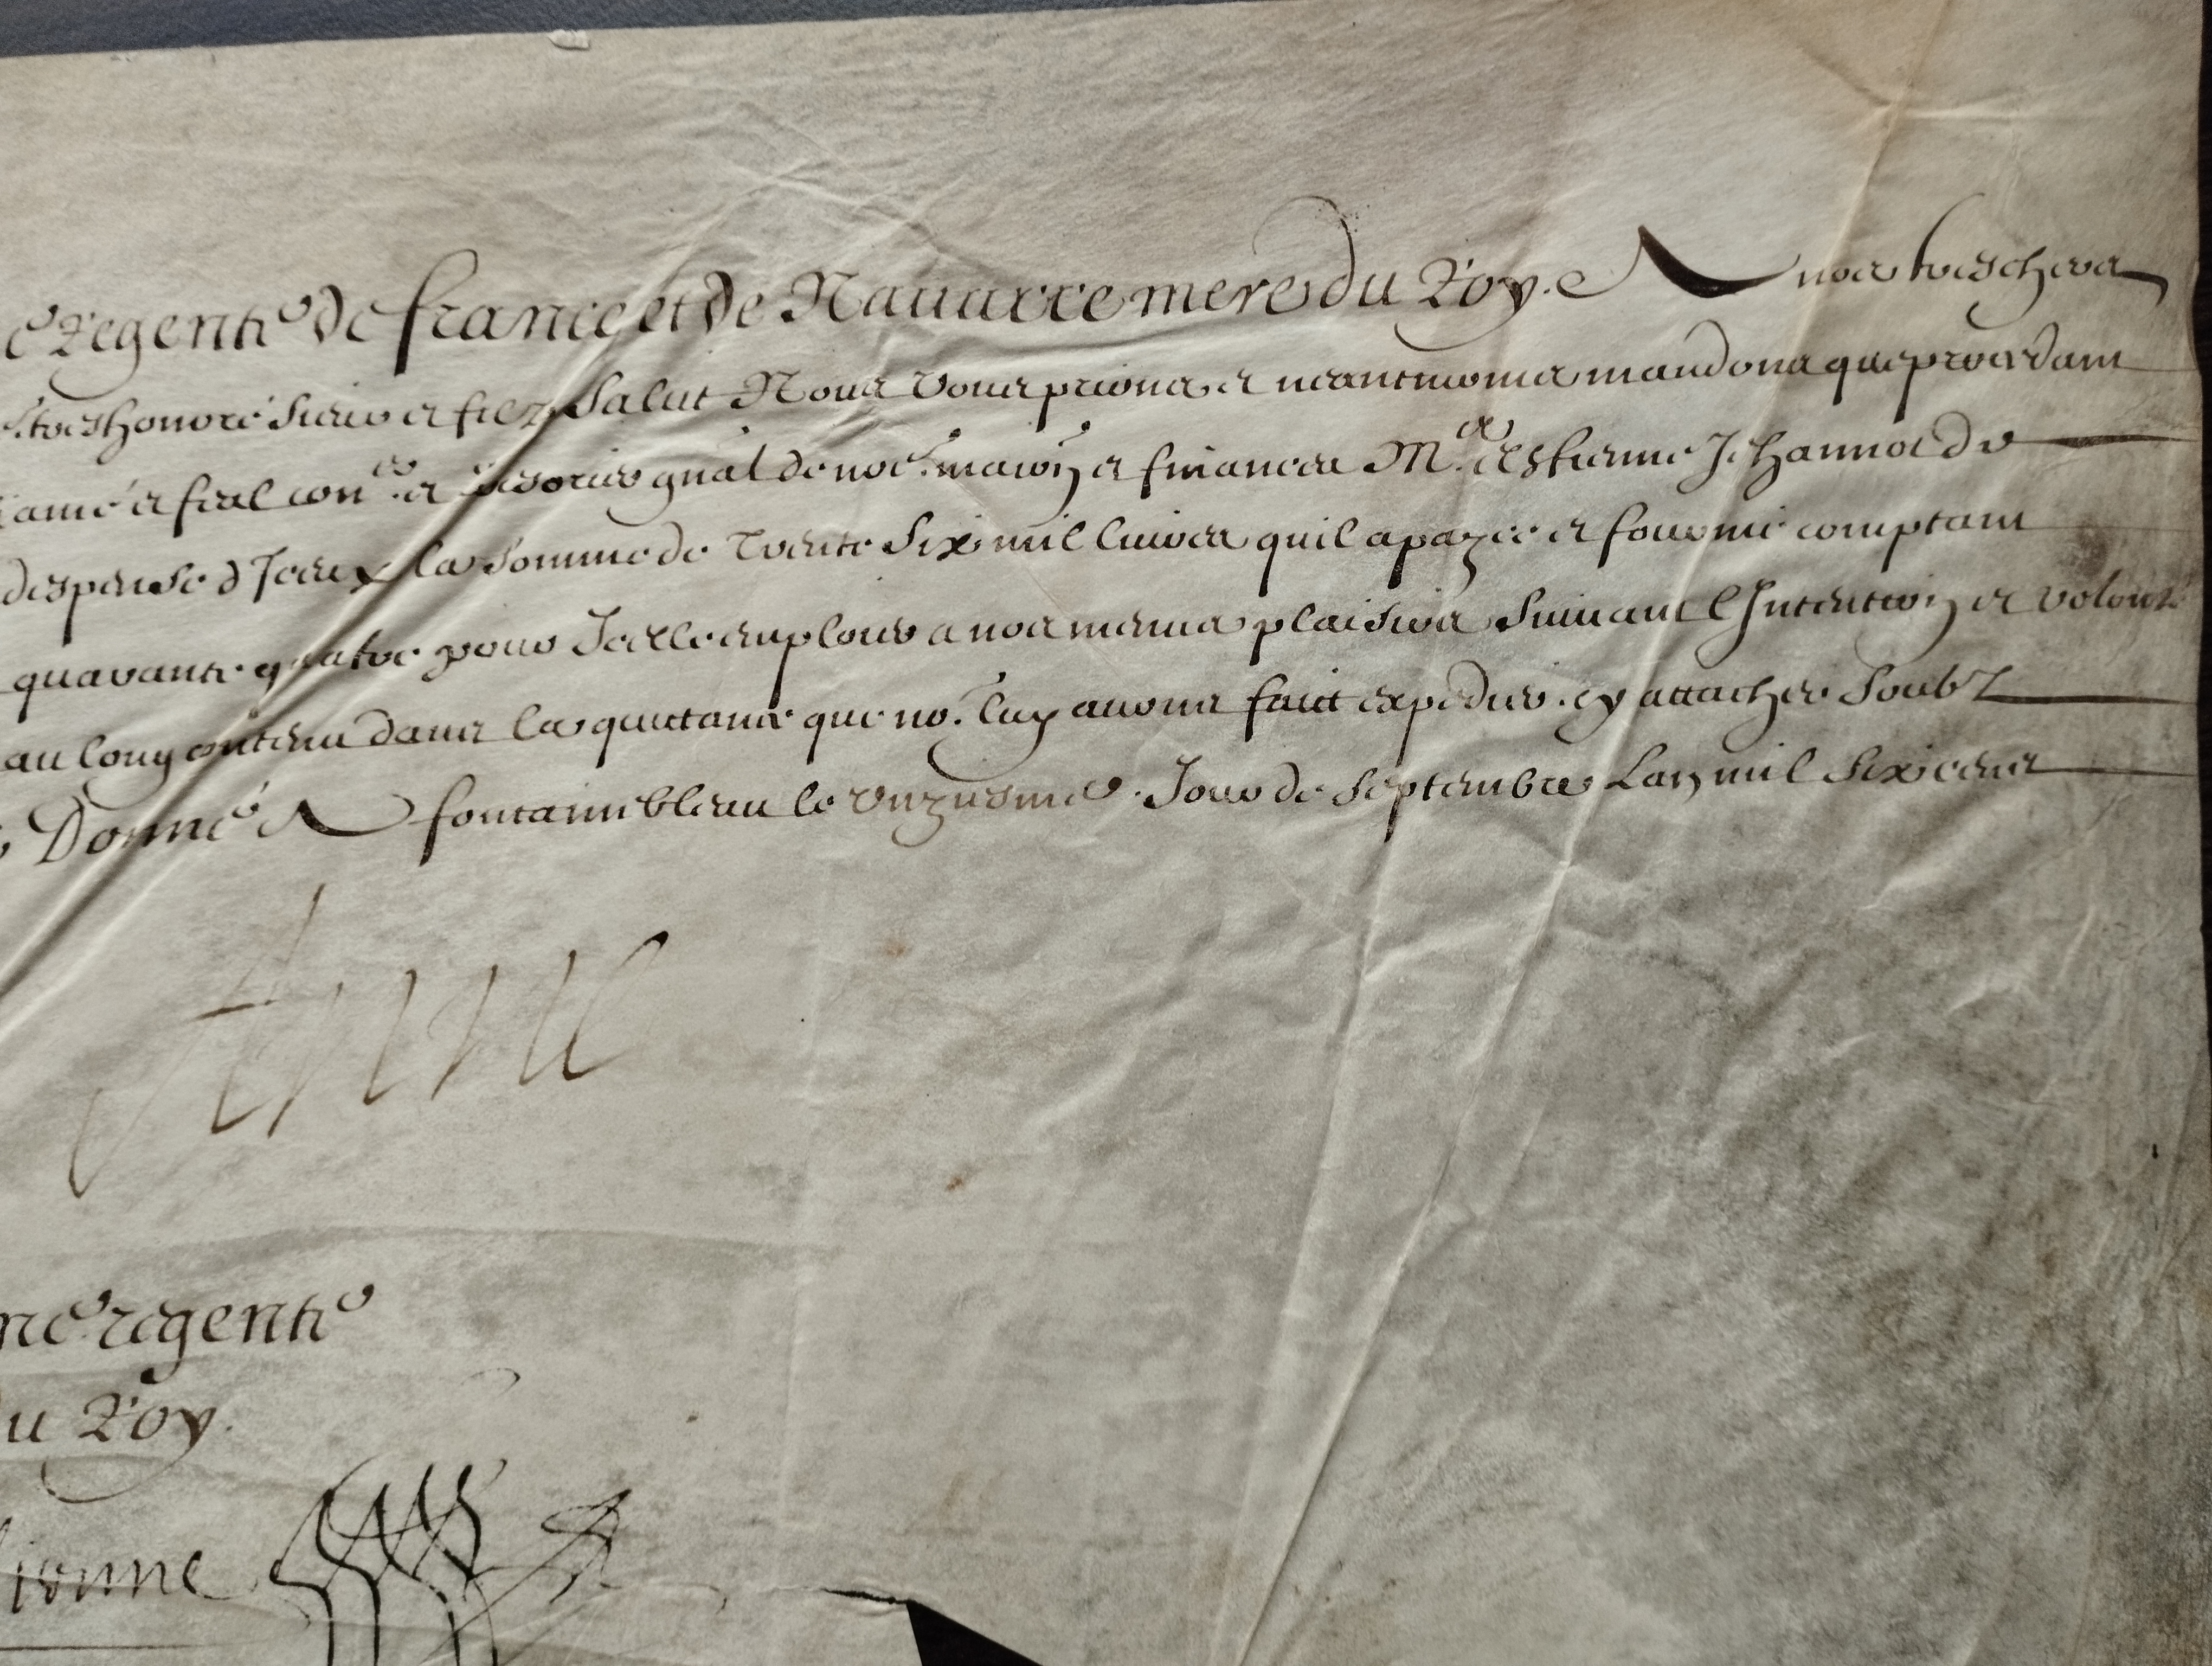 e regente de france et de Nauarre mere du Roy. A nos treschers
treshonoré Sieur et filz Salut Nous vous prions et neantmoins mandons que procedant
amé et feal con.er et Tresorier gnal de no.e maison et finances M.e Estienne Jehannot de
despense d'Iceux la Somme de Trente Six mil liures quil a payée et fourni comptant
quarante quatre pour Icelle emploier a nos menus plaisirs Suiuant l'Intention et volonté
au long contenu dans la quittance que no. luy auons fait expedier. cy attachée Soubz
Donné A fontainebleau le unziesme Jour de Septembre Lan mil Six cens
Anne
regente
du Roy.
Lionne